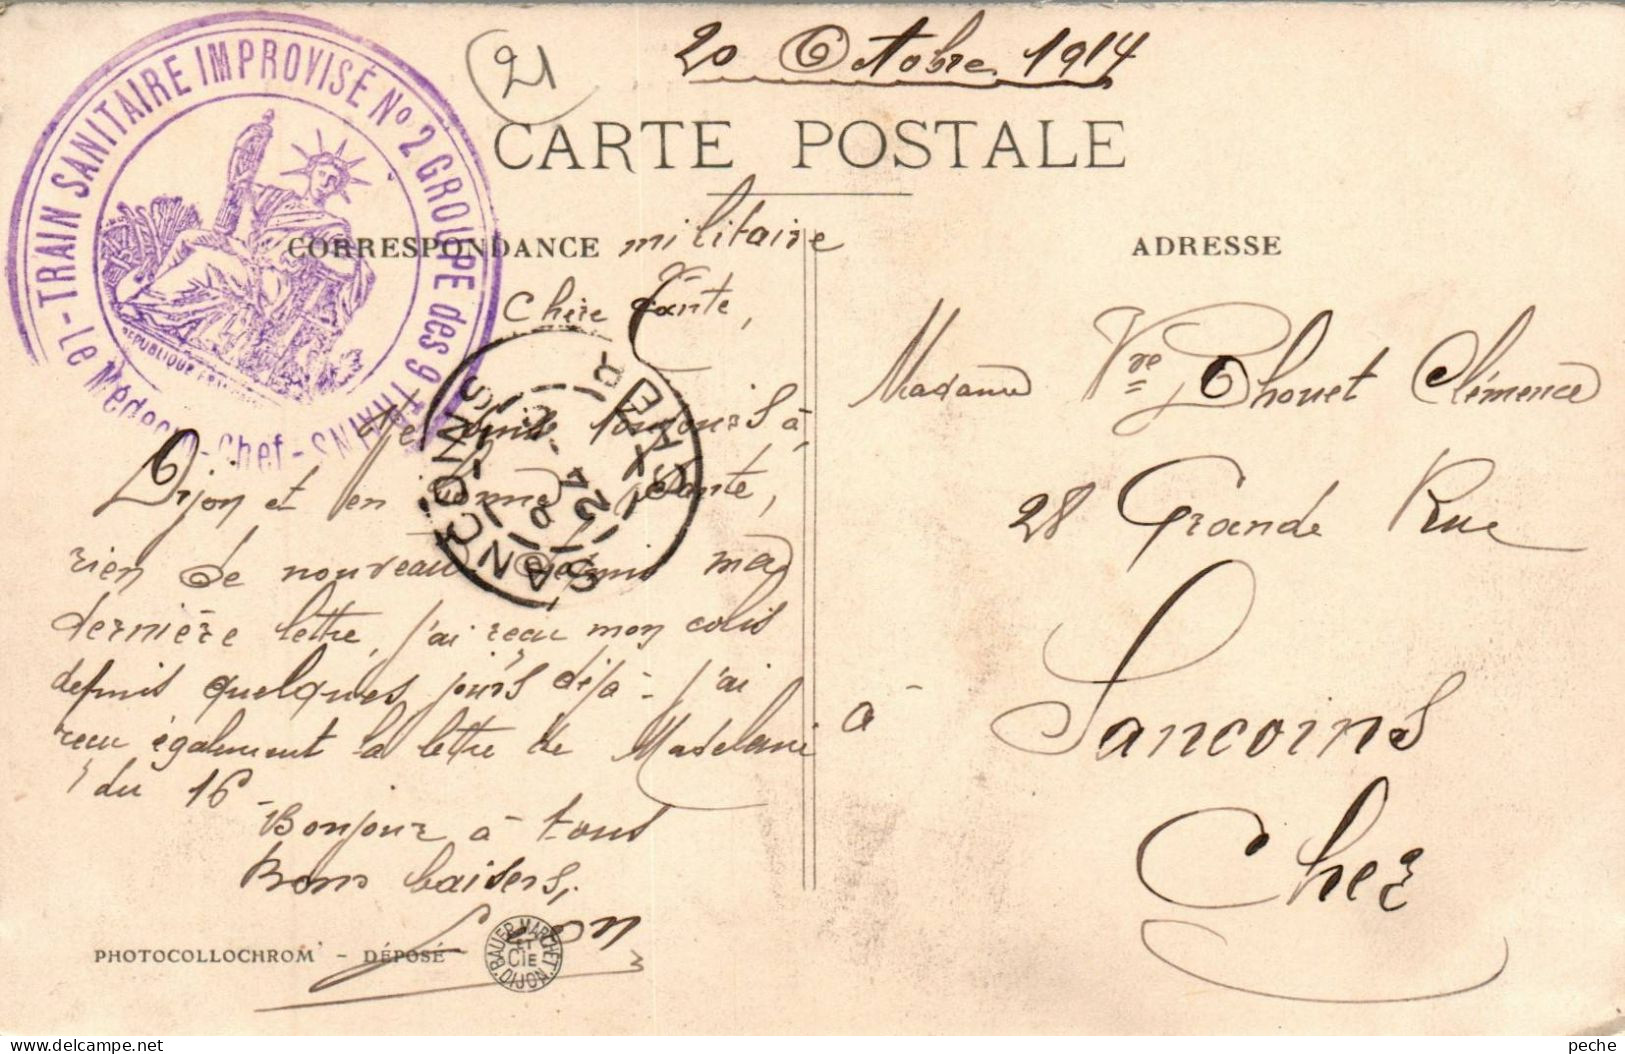 20 Octobre 1914
21
CARTE POSTALE
LE TRAIN SANITAIRE IMPROVISÉ No 2 GROUPE des 9 TRAINS - Le Médecin-Chef -
REPUBLIQUE
CORRESPONDANCE militaire
Chère Tante,
Me suis toujours à
Dijon et en bonne santé,
rien de nouveau depuis ma
dernière lettre, j'ai reçu mon colis
depuis quelques jours déjà - j'ai
reçu également la lettre de Madelaine
du 16
Bonjour à tous
Bons baisers,
Léon
SANCOINS
CHER
24
PHOTOCOLLOCHROM - DÉPOSÉ
BAUER MARCHET ET CIE DIJON
ADRESSE
Madame Vve Thouet Clémence
28 Grande Rue
à Sancoins
Cher
peche